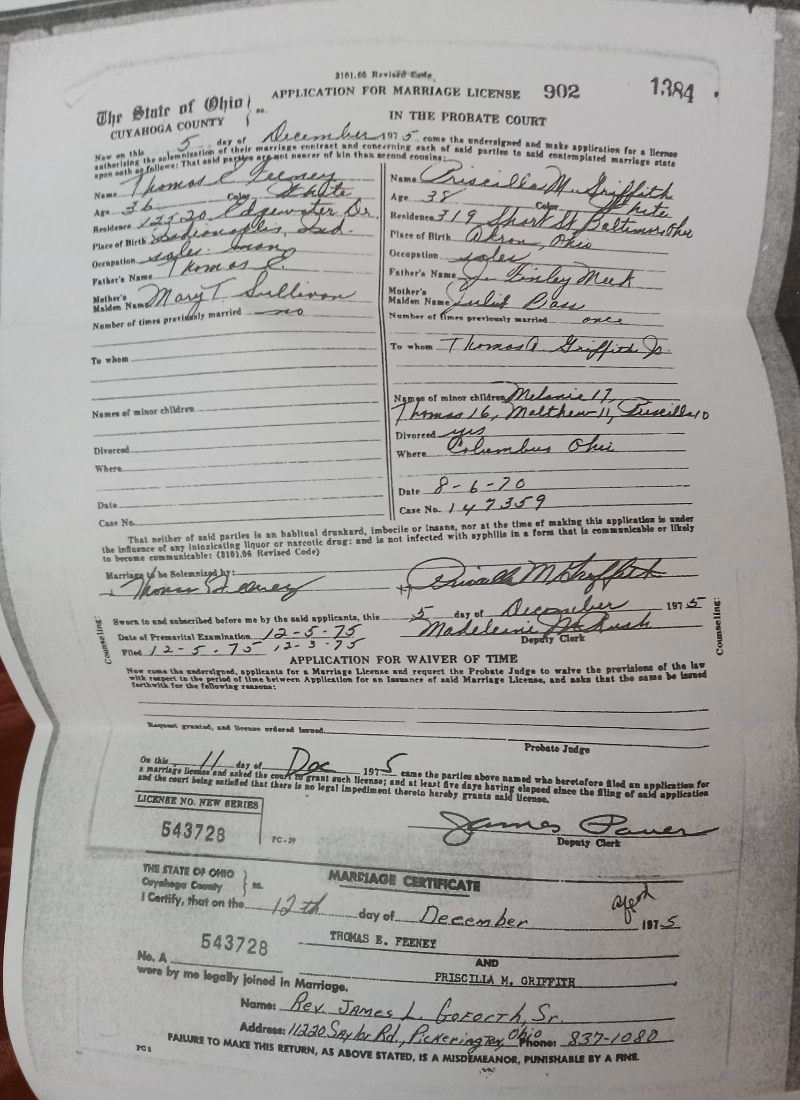 3101.05 Revised Code
APPLICATION FOR MARRIAGE LICENSE 902 1384
The State of Ohio } ss.
CUYAHOGA COUNTY
IN THE PROBATE COURT
Now on this 5 day of December 1975 come the undersigned and make application for a license
authorizing the solemnization of their marriage contract and concerning each of said parties to said contemplated marriage state
upon oath as follows: That said parties are not nearer of kin than second cousins:
Name Thomas E Feeney
Age 36 Color White
Residence 12520 Edgewater Dr.
Place of Birth Indianapolis, Ind.
Occupation sales man
Father's Name Thomas E.
Mother's
Maiden Name Mary T Sullivan
Number of times previously married no
To whom
Names of minor children
Divorced
Where
Date
Case No.
Name Priscilla M. Griffith
Age 38 Color White
Residence 319 Short St Baltimore Ohio
Place of Birth Akron, Ohio
Occupation sales
Father's Name J. Finley Meek
Mother's
Maiden Name Bass
Number of times previously married once
To whom Thomas A Griffith Jr.
Names of minor children Melanie 17,
Thomas 16, Matthew 11, Priscilla 10
Divorced yes
Where Columbus Ohio
Date 8-6-70
Case No. 147359
That neither of said parties is an habitual drunkard, imbecile or insane, nor at the time of making this application is under
the influence of any intoxicating liquor or narcotic drug: and is not infected with syphilis in a form that is communicable or likely
to become communicable: (3101.06 Revised Code)
Marriage to be Solemnized by:
Thomas Feeney Priscilla M. Griffith
Counseling:
Sworn to and subscribed before me by the said applicants, this 5 day of December 1975
Date of Premarital Examination 12-5-75 Madeleine
Filed 12-5-75 12-3-75 Deputy Clerk
Counseling:
APPLICATION FOR WAIVER OF TIME
Now come the undersigned, applicants for a Marriage License and request the Probate Judge to waive the provisions of the law
with respect to the period of time between Application for an Issuance of said Marriage License, and asks that the same be issued
forthwith for the following reasons:
Request granted, and license ordered issued
Probate Judge
On this 11 day of Dec 1975 came the parties above named who heretofore filed an application for
a marriage license and asked the court to grant such license; and at least five days having elapsed since the filing of said application
and the court being satisfied that there is no legal impediment thereto hereby grants said license.
LICENSE NO. NEW SERIES
543728
PC-29
James
Deputy Clerk
THE STATE OF OHIO } ss.
Cuyahoga County
MARRIAGE CERTIFICATE
I Certify, that on the 12th day of December 1975
THOMAS E. FEENEY
No. A 543728 AND
PRISCILLA M. GRIFFITH
were by me legally joined in Marriage.
Name: Rev. James L. Goforth, Sr.
Address: 11220 Saylor Rd., Pickerington, Ohio Phone: 837-1080
PC 8 FAILURE TO MAKE THIS RETURN, AS ABOVE STATED, IS A MISDEMEANOR, PUNISHABLE BY A FINE.